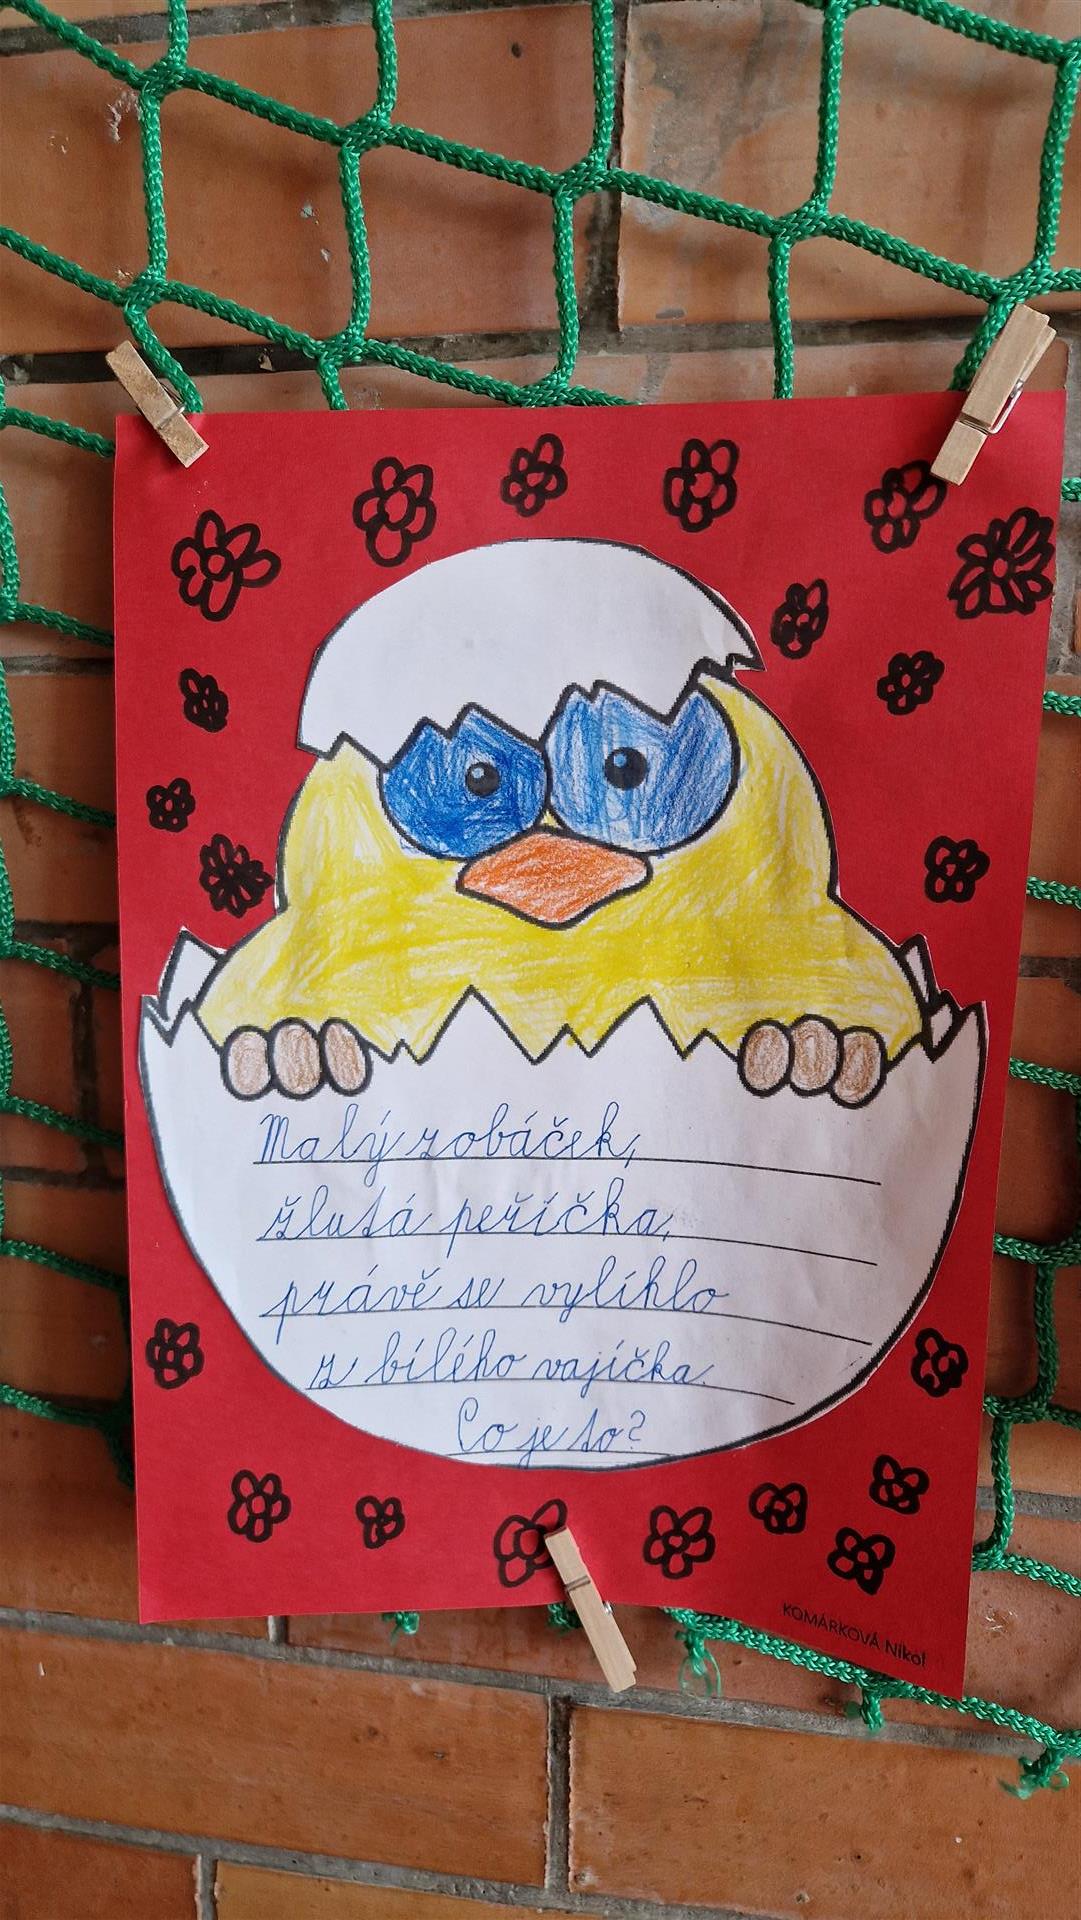 Malý zobáček,
žlutá peříčka,
právě se vylíhlo
z bílého vajíčka.
Co je to?
KOMÁRKOVÁ Nikol